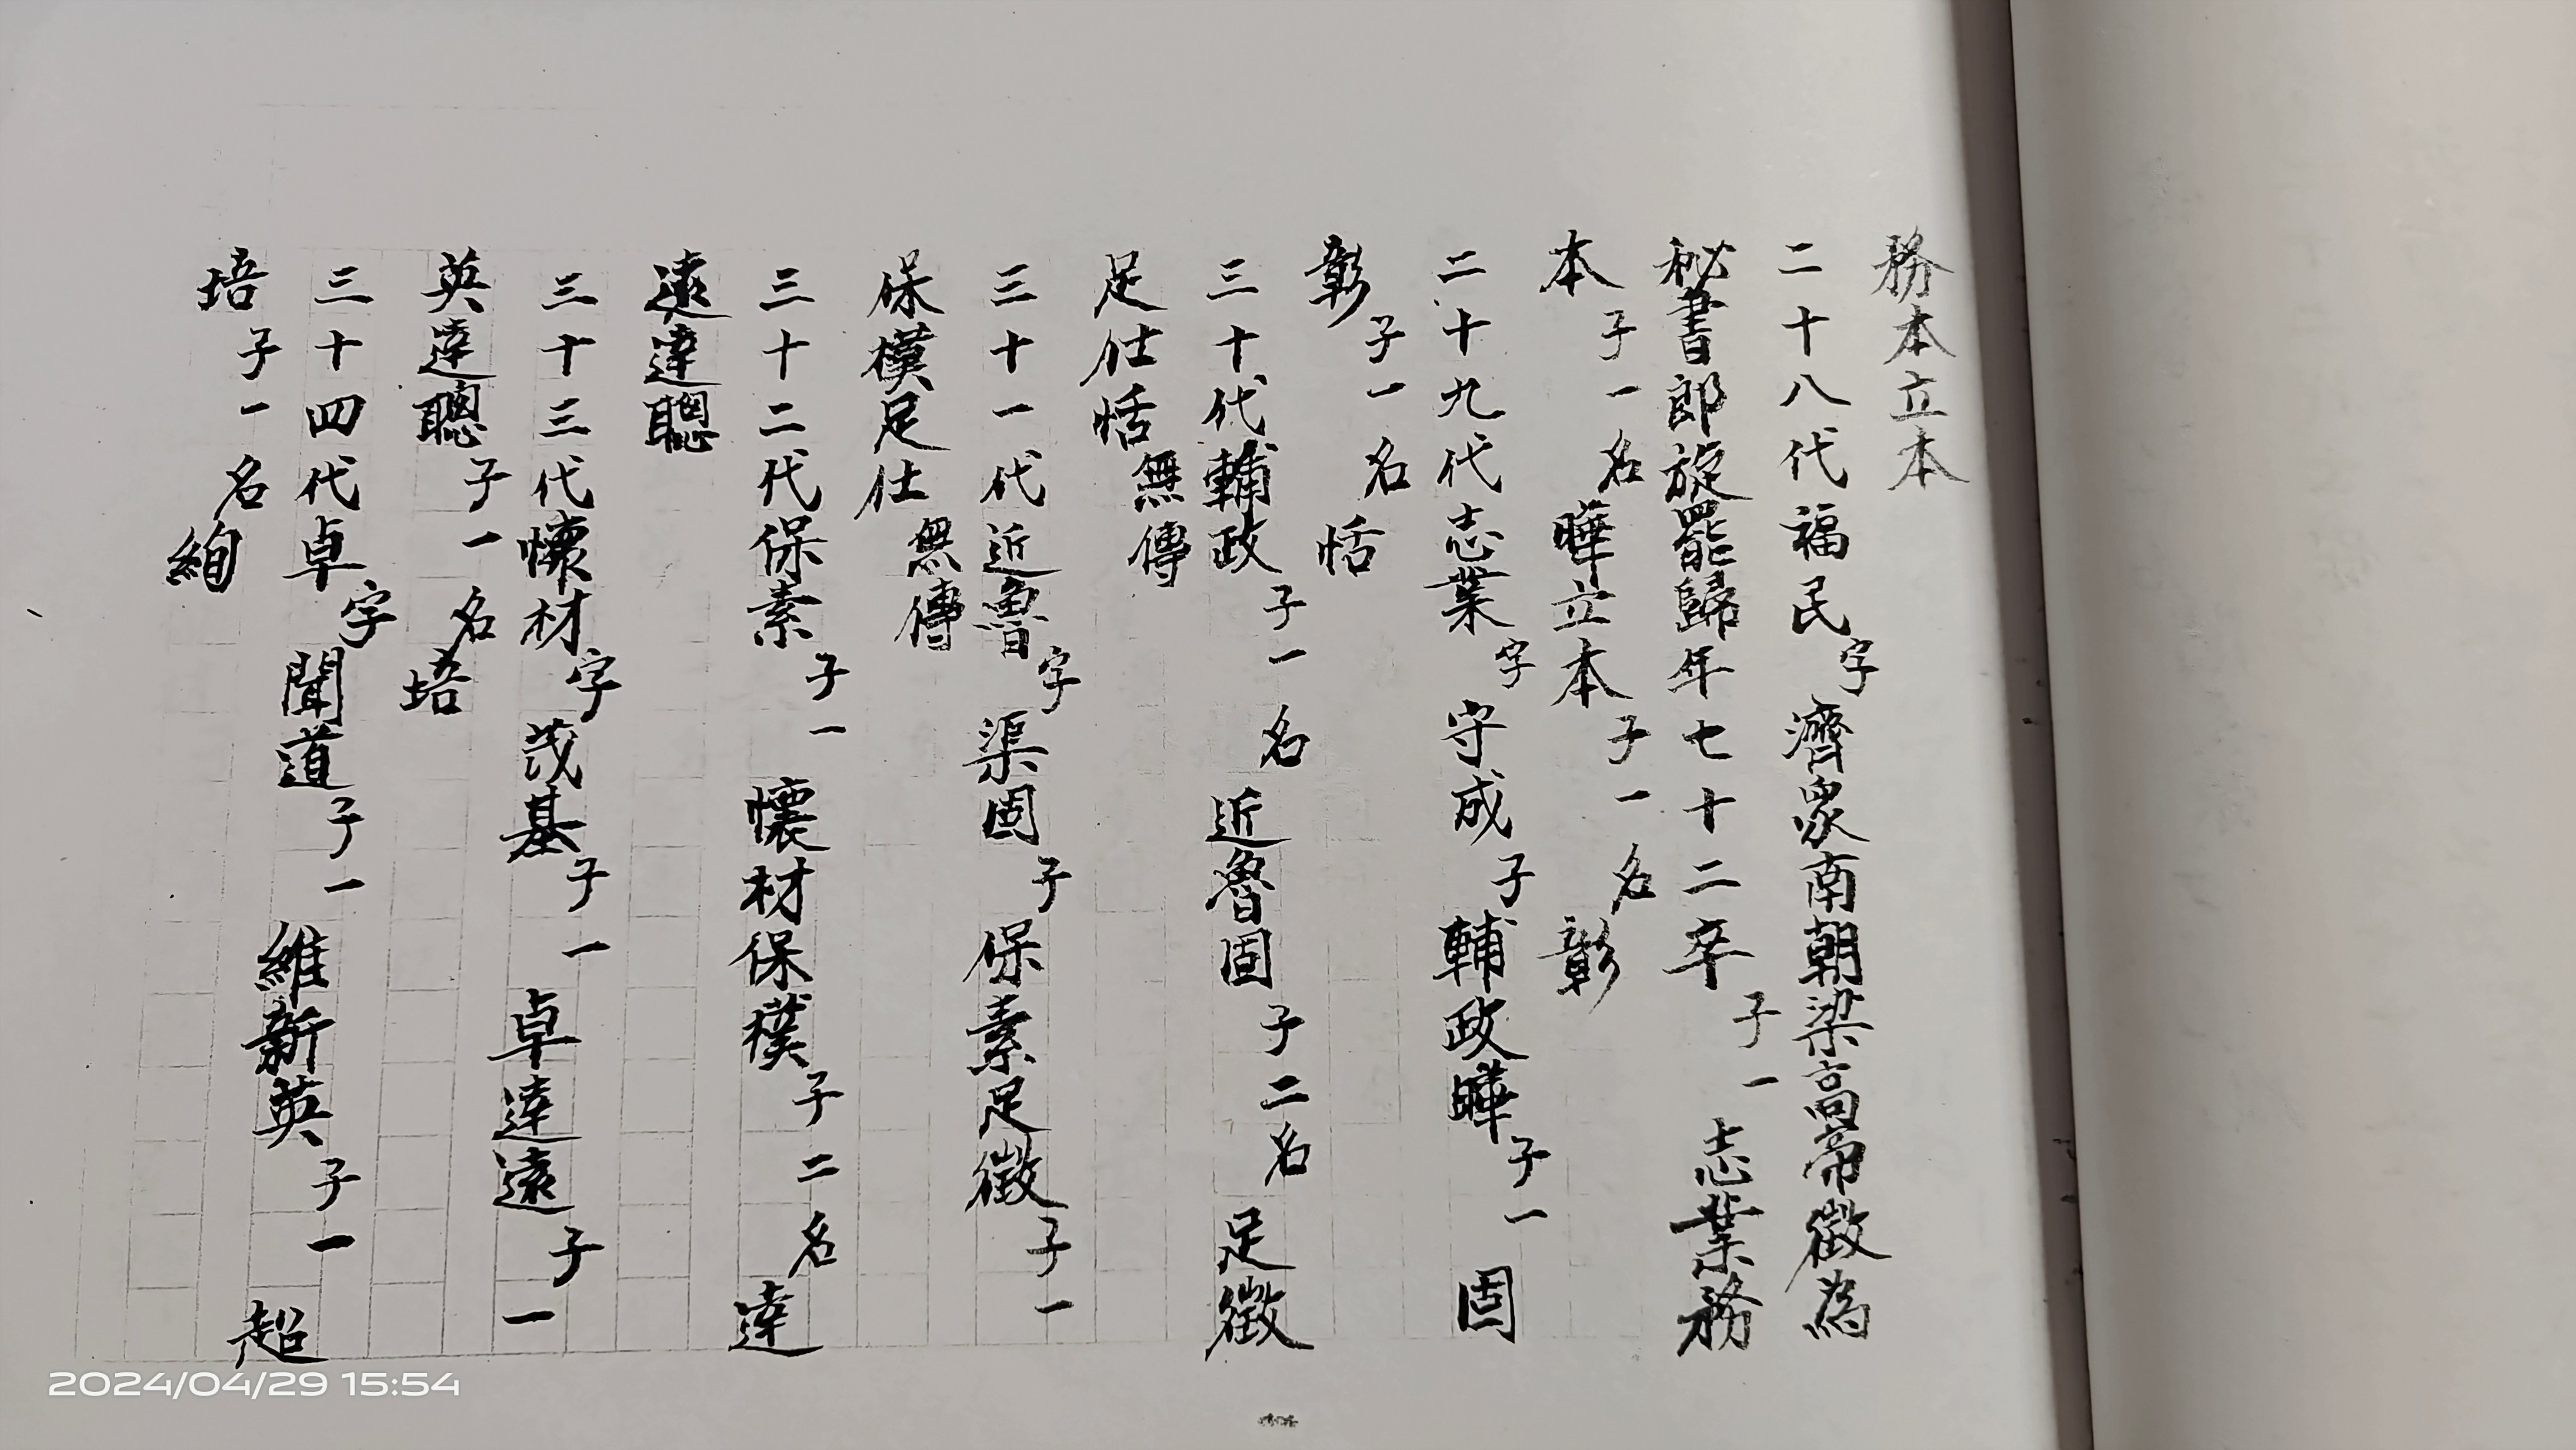 務本立本
二十八代福民字濟眾南朝梁高帝徵為
秘書郎旋罷歸年七十二卒子一志業務
本子一名曄立本子一名彰
二十九代志業字守成子輔政曄子一固
彰子一名恬
三十代輔政子一名近魯固子二名足徵
足仕恬無傳
三十一代近魯字渠固子保素足徵子一
保樸足仕無傳
三十二代保素子一懷材保樸子二名達
遠達聰
三十三代懷材字茂基子一卓達遠子一
英達聰子一名培
三十四代卓字聞道子一維新英子一超
培子一名絢
2024/04/29 15:54